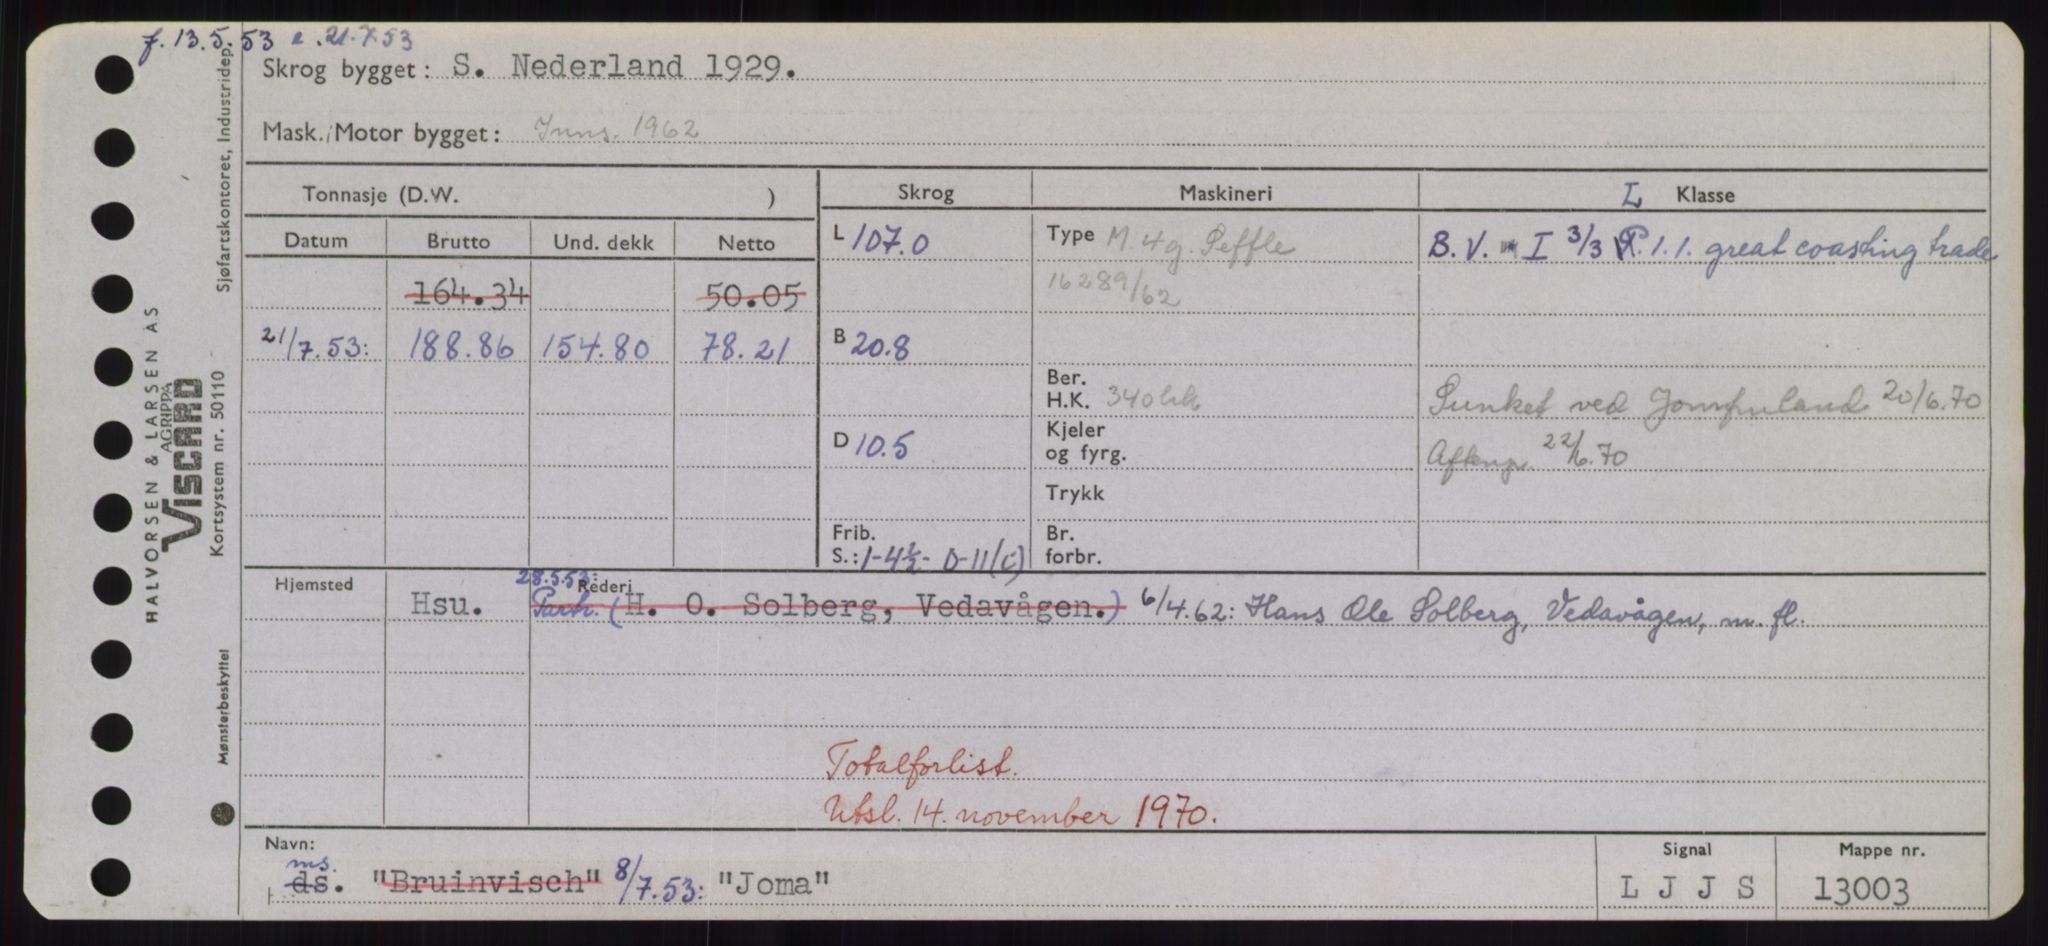 f. 13.5.53 e. 21.7.53
Skrog bygget: S. Nederland 1929.
Mask./Motor bygget: Inns. 1962
Tonnasje (D.W. ) Skrog Maskineri L Klasse
Datum Brutto Und. dekk Netto L 107.0 Type M. 4 g. B.V. I 3/3 1.1. great coasting trade
164.34 50.05 16289/62
21/7.53: 188.86 154.80 78.21 B 20.8
Ber.
H.K. 340 Sunket ved Jomfruland 20/6.70
D 10.5 Kjeler
og fyrg. Aftenp. 22/6.70
Trykk
Frib.
S.: 1-4½- D-11(c) Br.
forbr.
Hjemsted 28.5.53: Rederi
Hsu. Partr. (H. O. Solberg, Vedavågen.) 6/4.62: Hans Ole Solberg, Vedavågen, m. fl.
Totalforlist.
Utsl. 14. november 1970.
Navn: Signal Mappe nr.
ms.
ds. "Bruinvisch" 8/7.53: "Joma" L J J S 13003
HALVORSEN & LARSEN AS
AGRIPPA
VISCARD
Sjøfartskontoret, Industridep.
Kortsystem nr. 50110
Mønsterbeskyttet